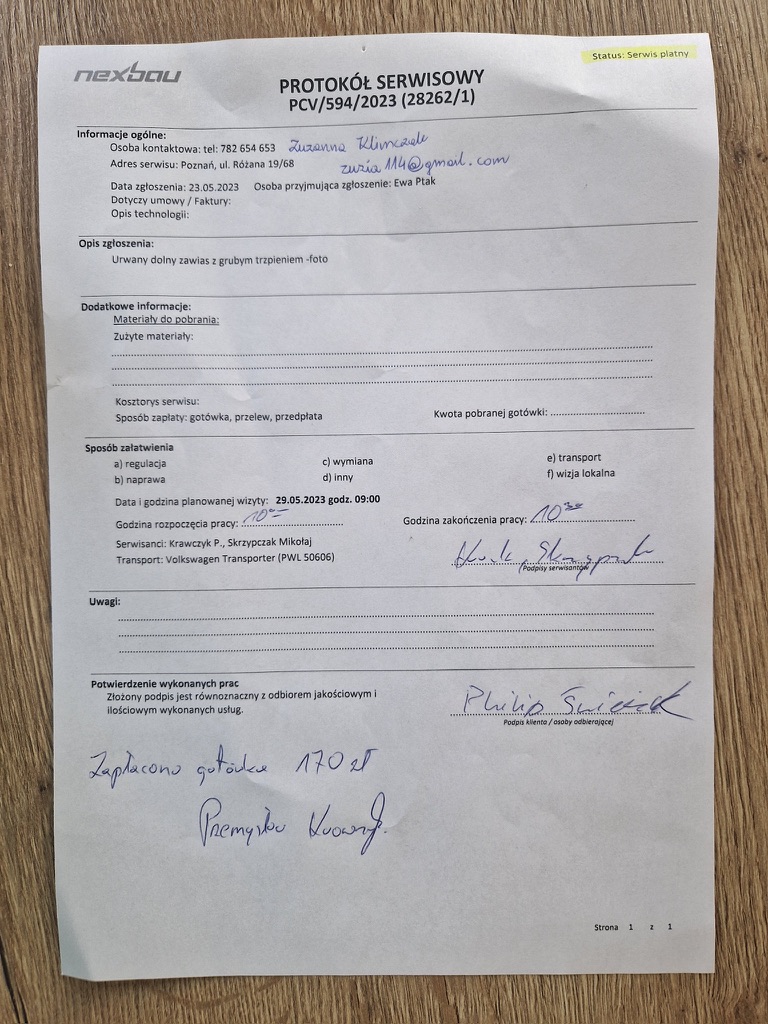 nexbau
Status: Serwis płatny
PROTOKÓŁ SERWISOWY
PCV/594/2023 (28262/1)
Informacje ogólne:
Osoba kontaktowa: tel: 782 654 653 Zuzanna Klimczak
Adres serwisu: Poznań, ul. Różana 19/68 zuzia114@gmail.com
Data zgłoszenia: 23.05.2023 Osoba przyjmująca zgłoszenie: Ewa Ptak
Dotyczy umowy / Faktury:
Opis technologii:
Opis zgłoszenia:
Urwany dolny zawias z grubym trzpieniem -foto
Dodatkowe informacje:
Materiały do pobrania:
Zużyte materiały:
Kosztorys serwisu:
Sposób zapłaty: gotówka, przelew, przedpłata Kwota pobranej gotówki:
Sposób załatwienia
a) regulacja c) wymiana e) transport
b) naprawa d) inny f) wizja lokalna
Data i godzina planowanej wizyty: 29.05.2023 godz. 09:00
Godzina rozpoczęcia pracy: 10⁰⁰ Godzina zakończenia pracy: 10³⁰
Serwisanci: Krawczyk P., Skrzypczak Mikołaj
Transport: Volkswagen Transporter (PWL 50606)
Podpisy serwisantów
Uwagi:
Potwierdzenie wykonanych prac
Złożony podpis jest równoznaczny z odbiorem jakościowym i
ilościowym wykonanych usług.
Philip
Podpis klienta / osoby odbierającej
Zapłacono gotówka 170 zł
Przemysław
Strona 1 z 1